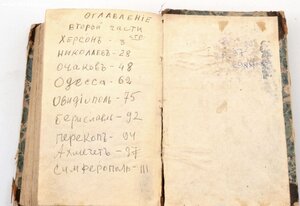 ОГЛАВЛЕНІЕ
ВТОРОЙ ЧАСТИ
СТР
ХЕРСОНЪ - 3
НИКОЛАЕВЪ - 28
ОЧАКОВЪ - 48
ОДЕССА - 62
ОВИДІОПОЛЬ - 75
БЕРИСЛАВЬ - 92
ПЕРЕКОПЪ - 94
АХМЕЧЕТЬ - 97
СИМФЕРОПОЛЬ - 111